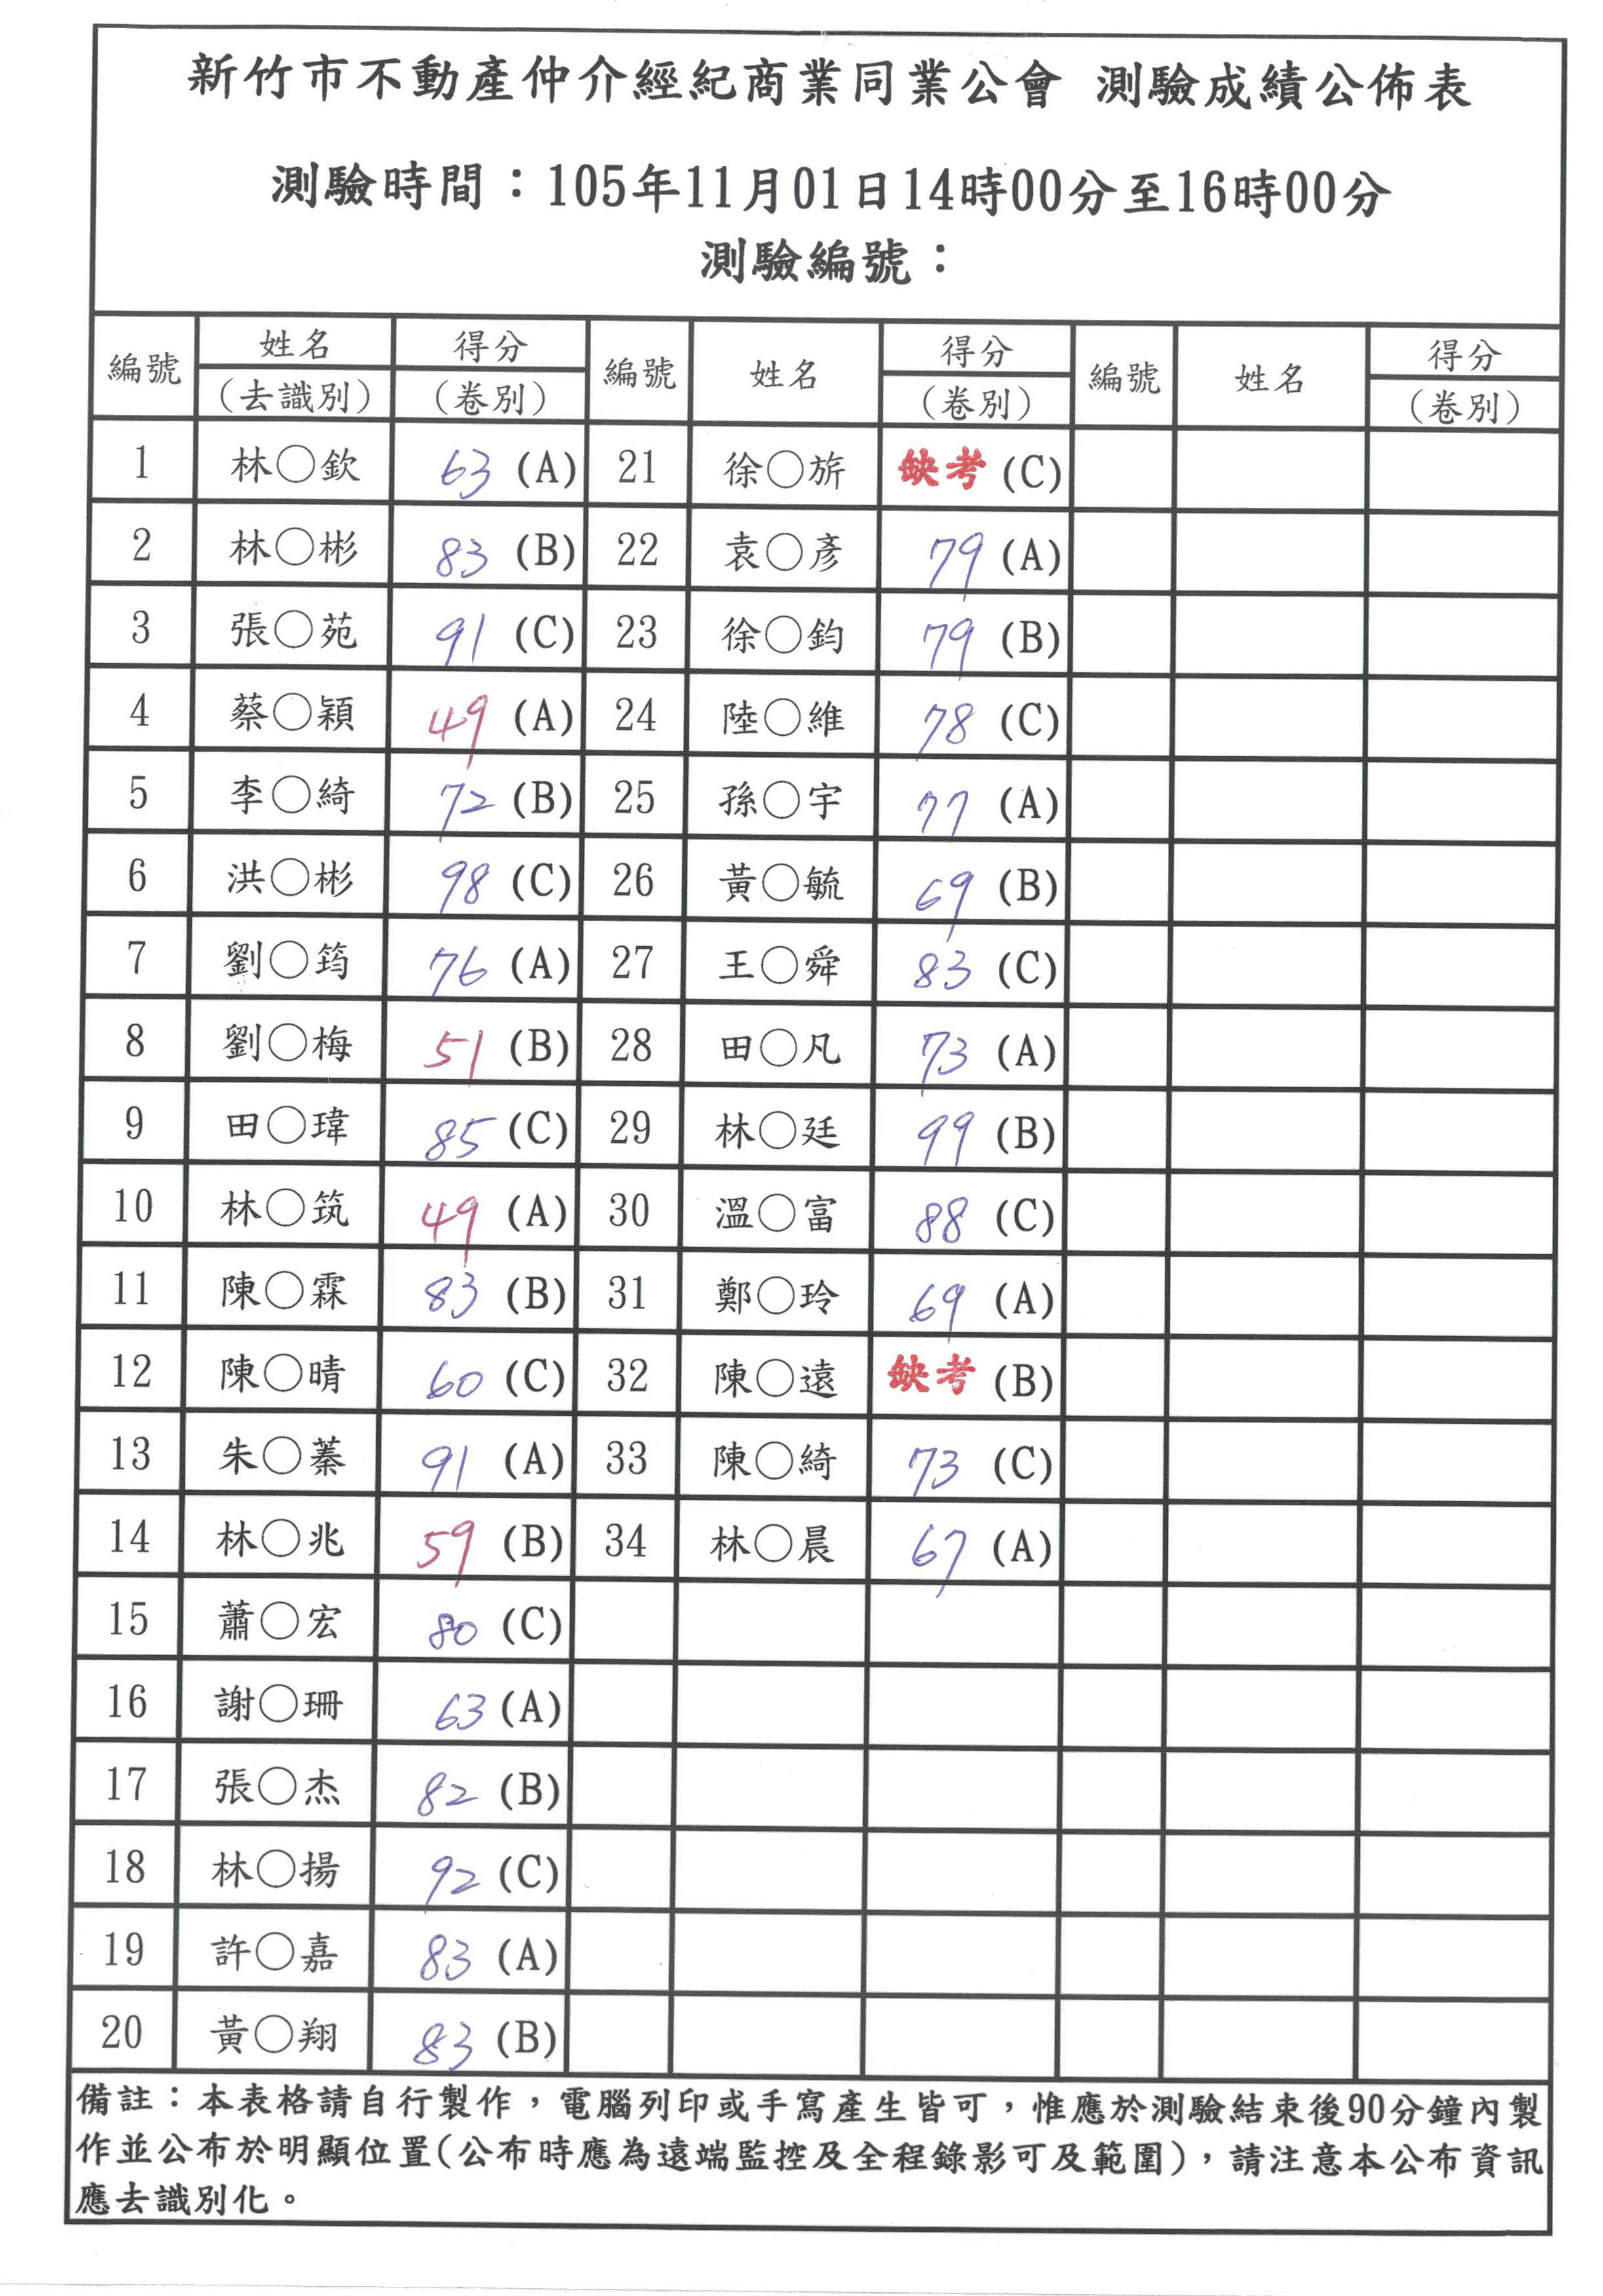 新竹市不動產仲介經紀商業同業公會 測驗成績公佈表
測驗時間：105年11月01日14時00分至16時00分
測驗編號：
編號 姓名 (去識別) 得分 (卷別) 編號 姓名 得分 (卷別) 編號 姓名 得分 (卷別)
1 林○欽 63 (A) 21 徐○旂 缺考 (C)
2 林○彬 83 (B) 22 袁○彥 79 (A)
3 張○苑 91 (C) 23 徐○鈞 79 (B)
4 蔡○穎 49 (A) 24 陸○維 78 (C)
5 李○綺 72 (B) 25 孫○宇 77 (A)
6 洪○彬 98 (C) 26 黃○毓 69 (B)
7 劉○筠 76 (A) 27 王○舜 83 (C)
8 劉○梅 51 (B) 28 田○凡 73 (A)
9 田○瑋 85 (C) 29 林○廷 99 (B)
10 林○筑 49 (A) 30 溫○富 88 (C)
11 陳○霖 83 (B) 31 鄭○玲 69 (A)
12 陳○晴 60 (C) 32 陳○遠 缺考 (B)
13 朱○蓁 91 (A) 33 陳○綺 73 (C)
14 林○兆 59 (B) 34 林○晨 67 (A)
15 蕭○宏 80 (C)
16 謝○珊 63 (A)
17 張○杰 82 (B)
18 林○揚 92 (C)
19 許○嘉 83 (A)
20 黃○翔 83 (B)
備註：本表格請自行製作，電腦列印或手寫產生皆可，惟應於測驗結束後90分鐘內製
作並公布於明顯位置(公布時應為遠端監控及全程錄影可及範圍)，請注意本公布資訊
應去識別化。